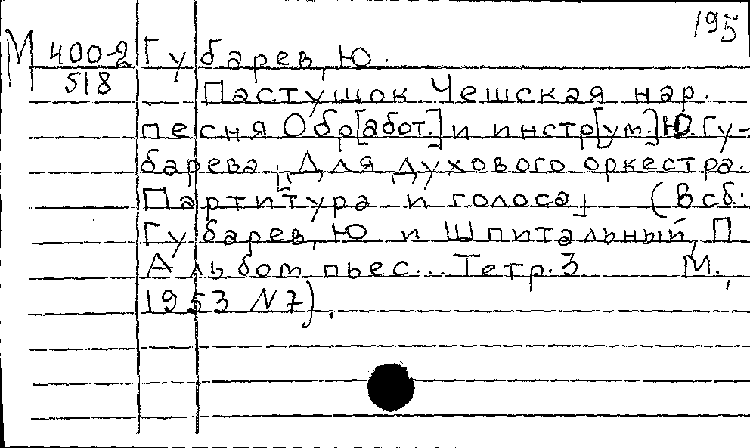 195
М 400-2 Губарев, Ю.
518
Пастушок Чешская нар.
песня Обр[абот.] и инстр[ум.] Ю. Гу-
барева [Для духового оркестра.
Партитура и голоса] (В сб.:
Губарев, Ю и Шпитальный, П
Альбом пьес... Тетр. 3 М.,
1953 N7).